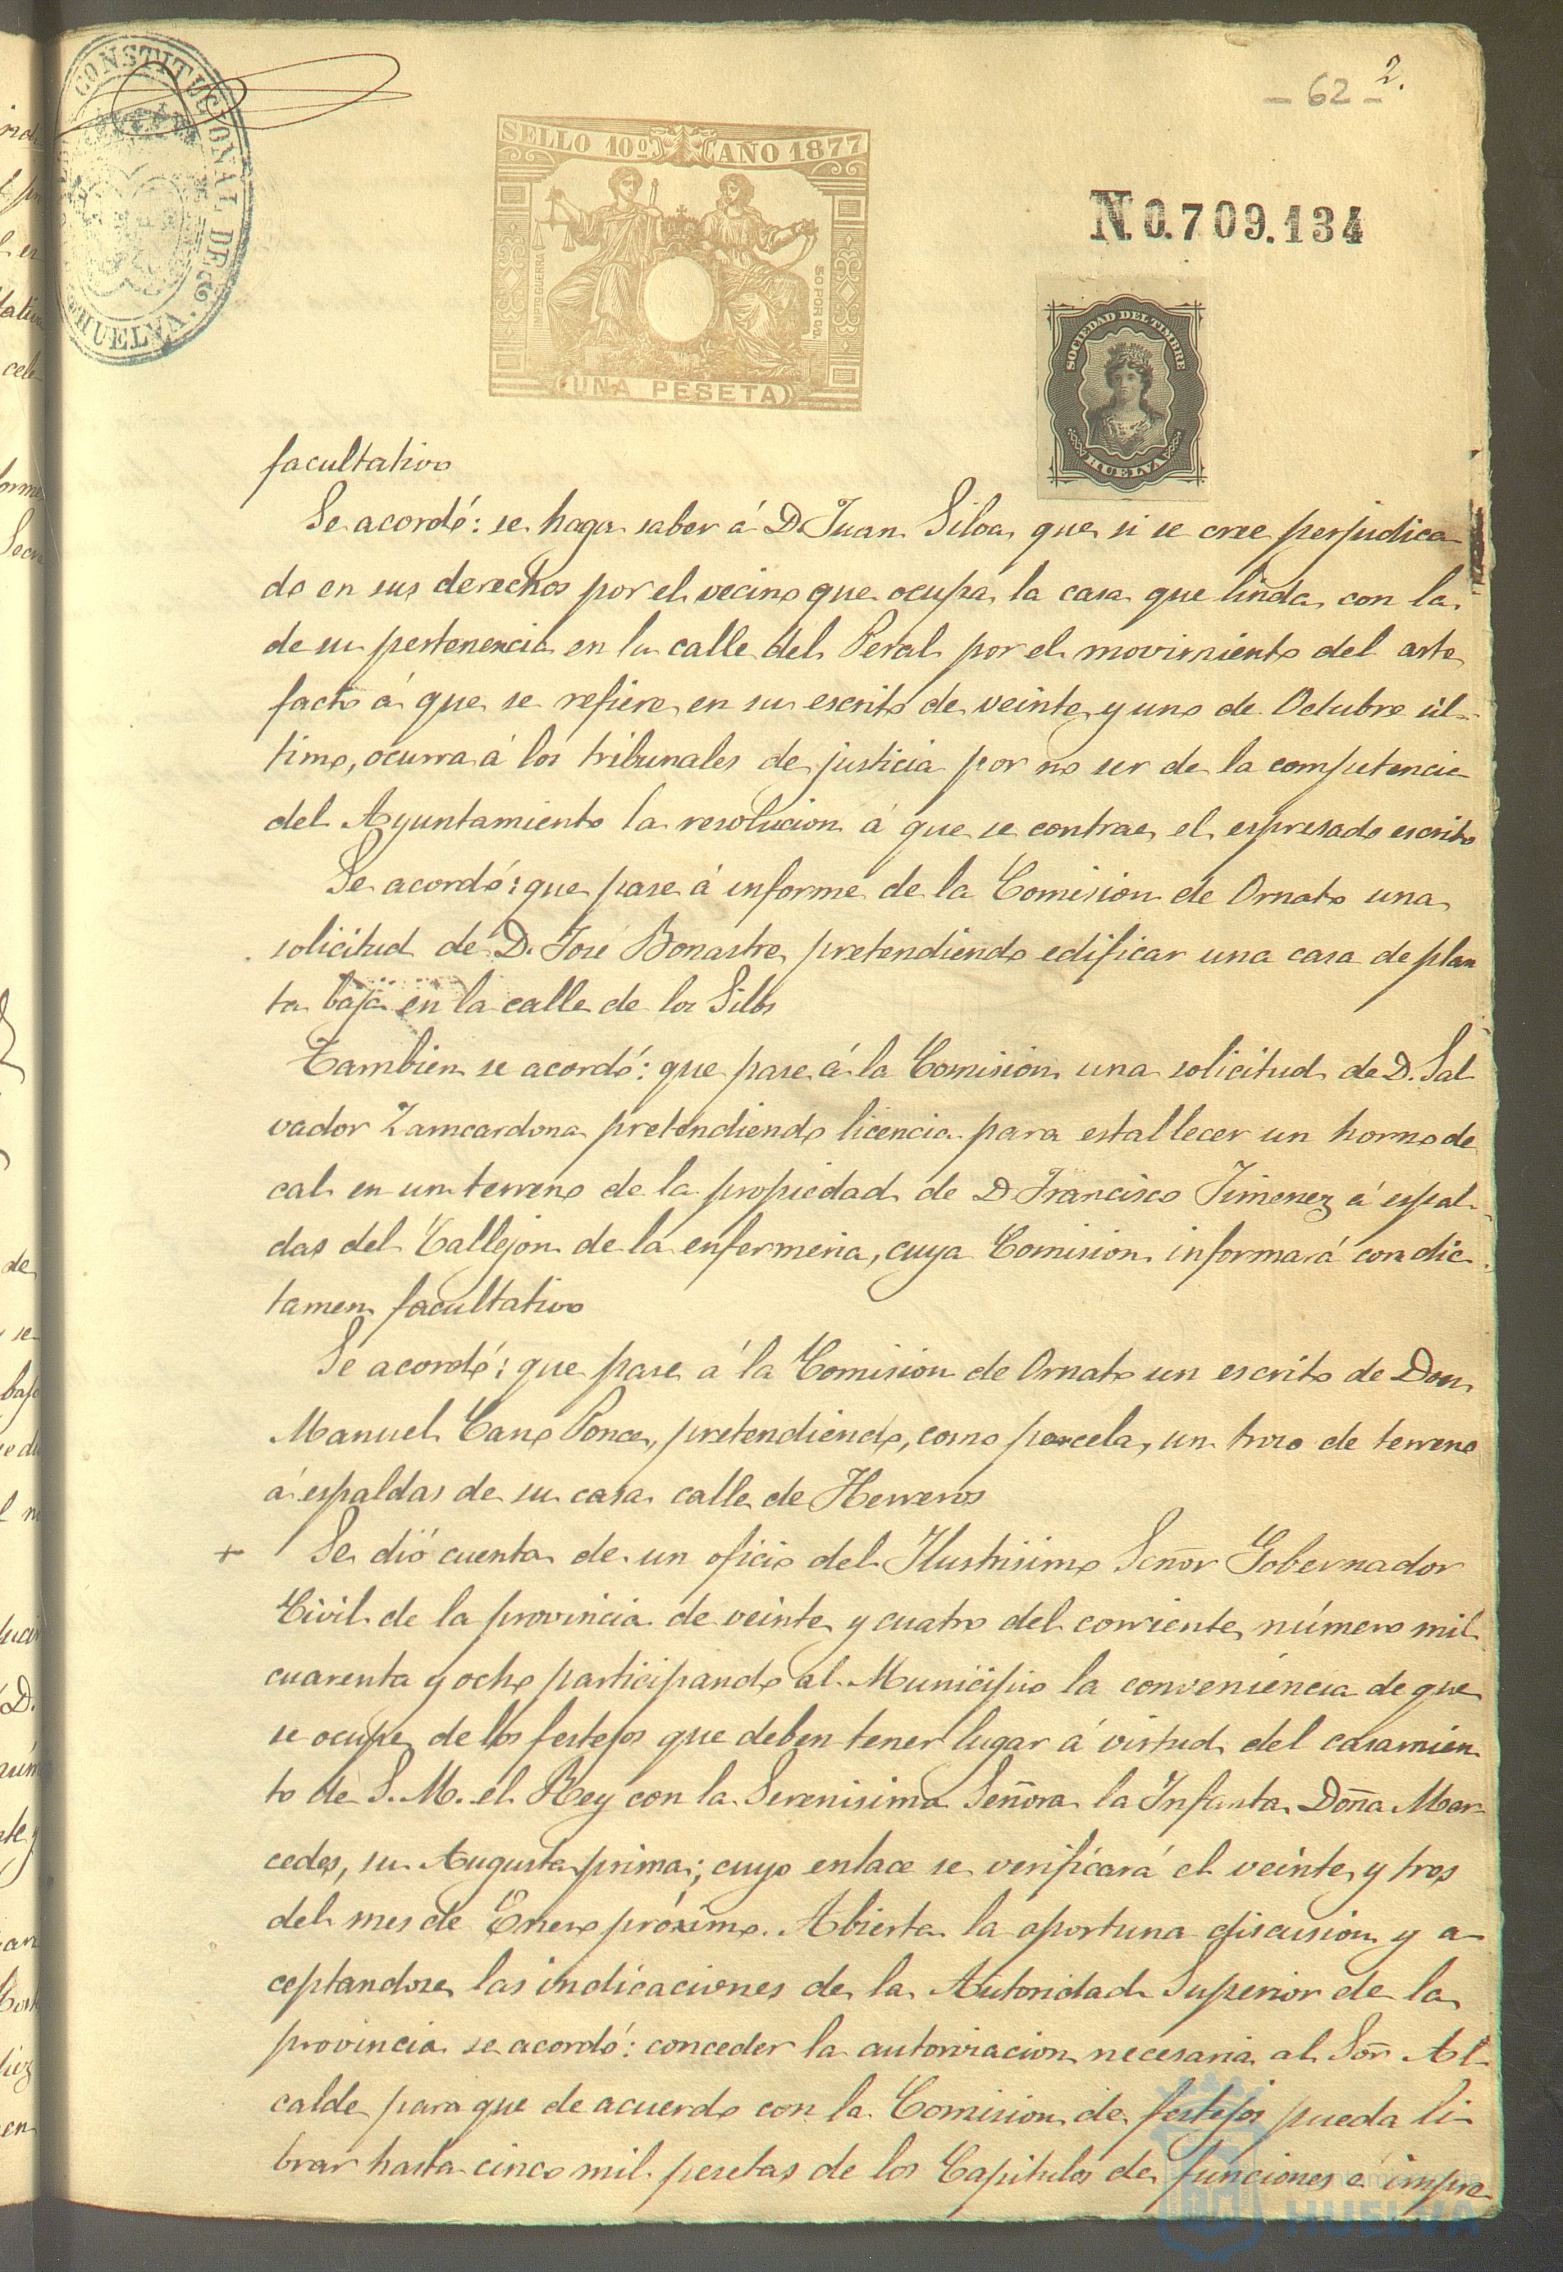 — 62 — 2.
CONSTITUCIONAL DE HUELVA
SELLO 10º AÑO 1877
IMPTO GUERRA
50 POR %
UNA PESETA
N.0.709.134
SOCIEDAD DEL TIMBRE
HUELVA
facultativo
Se acordó: se haga saber á D. Juan Siloa que si se cree perjudica
do en sus derechos por el vecino que ocupa la casa que linda con la
de su pertenencia en la calle del Peral por el movimiento del arte
facto á que se refiere en su escrito de veinte y uno de Octubre úl-
timo, ocurra á los tribunales de justicia por no ser de la competencia
del Ayuntamiento la resolucion á que se contrae el espresado escrito
Se acordó: que pase á informe de la Comision de Ornato una
solicitud de D. José Bonastre, pretendiendo edificar una casa de plan
ta baja en la calle de los Silos
Tambien se acordó: que pase á la Comision una solicitud de D. Sal
vador Zamcardona pretendiendo licencia para estallecer un horno de
cal en un terreno de la propiedad de D. Francisco Jimenez á espal-
das del Callejon de la enfermeria, cuya Comision informará con dic-
tamen facultativo
Se acordó: que pase á la Comision de Ornato un escrito de Don
Manuel Cano Ponce, pretendiendo, como parcela, un trozo de terreno
á espaldas de su casa calle de Herreros
+ Se dió cuenta de un oficio del Ilustrisimo Señor Gobernador
Civil de la provincia de veinte y cuatro del corriente, número mil
cuarenta y ocho participando al Municipio la conveniencia de que
se ocupe de los festejos que deben tener lugar á virtud del casamien
to de S. M. el Rey con la Serenisima Señora la Infanta Doña Mer-
cedes, su Augusta prima; cuyo enlace se verificará el veinte y tres
del mes de Enero próximo. Abierta la oportuna discusion y a-
ceptandose las indicaciones de la Autoridad Superior de la
provincia se acordó: conceder la autorizacion necesaria al Sor Al-
calde para que de acuerdo con la Comision de festejos pueda li-
brar hasta cinco mil pesetas de los Capitulos de funciones é impre-
HUELVA